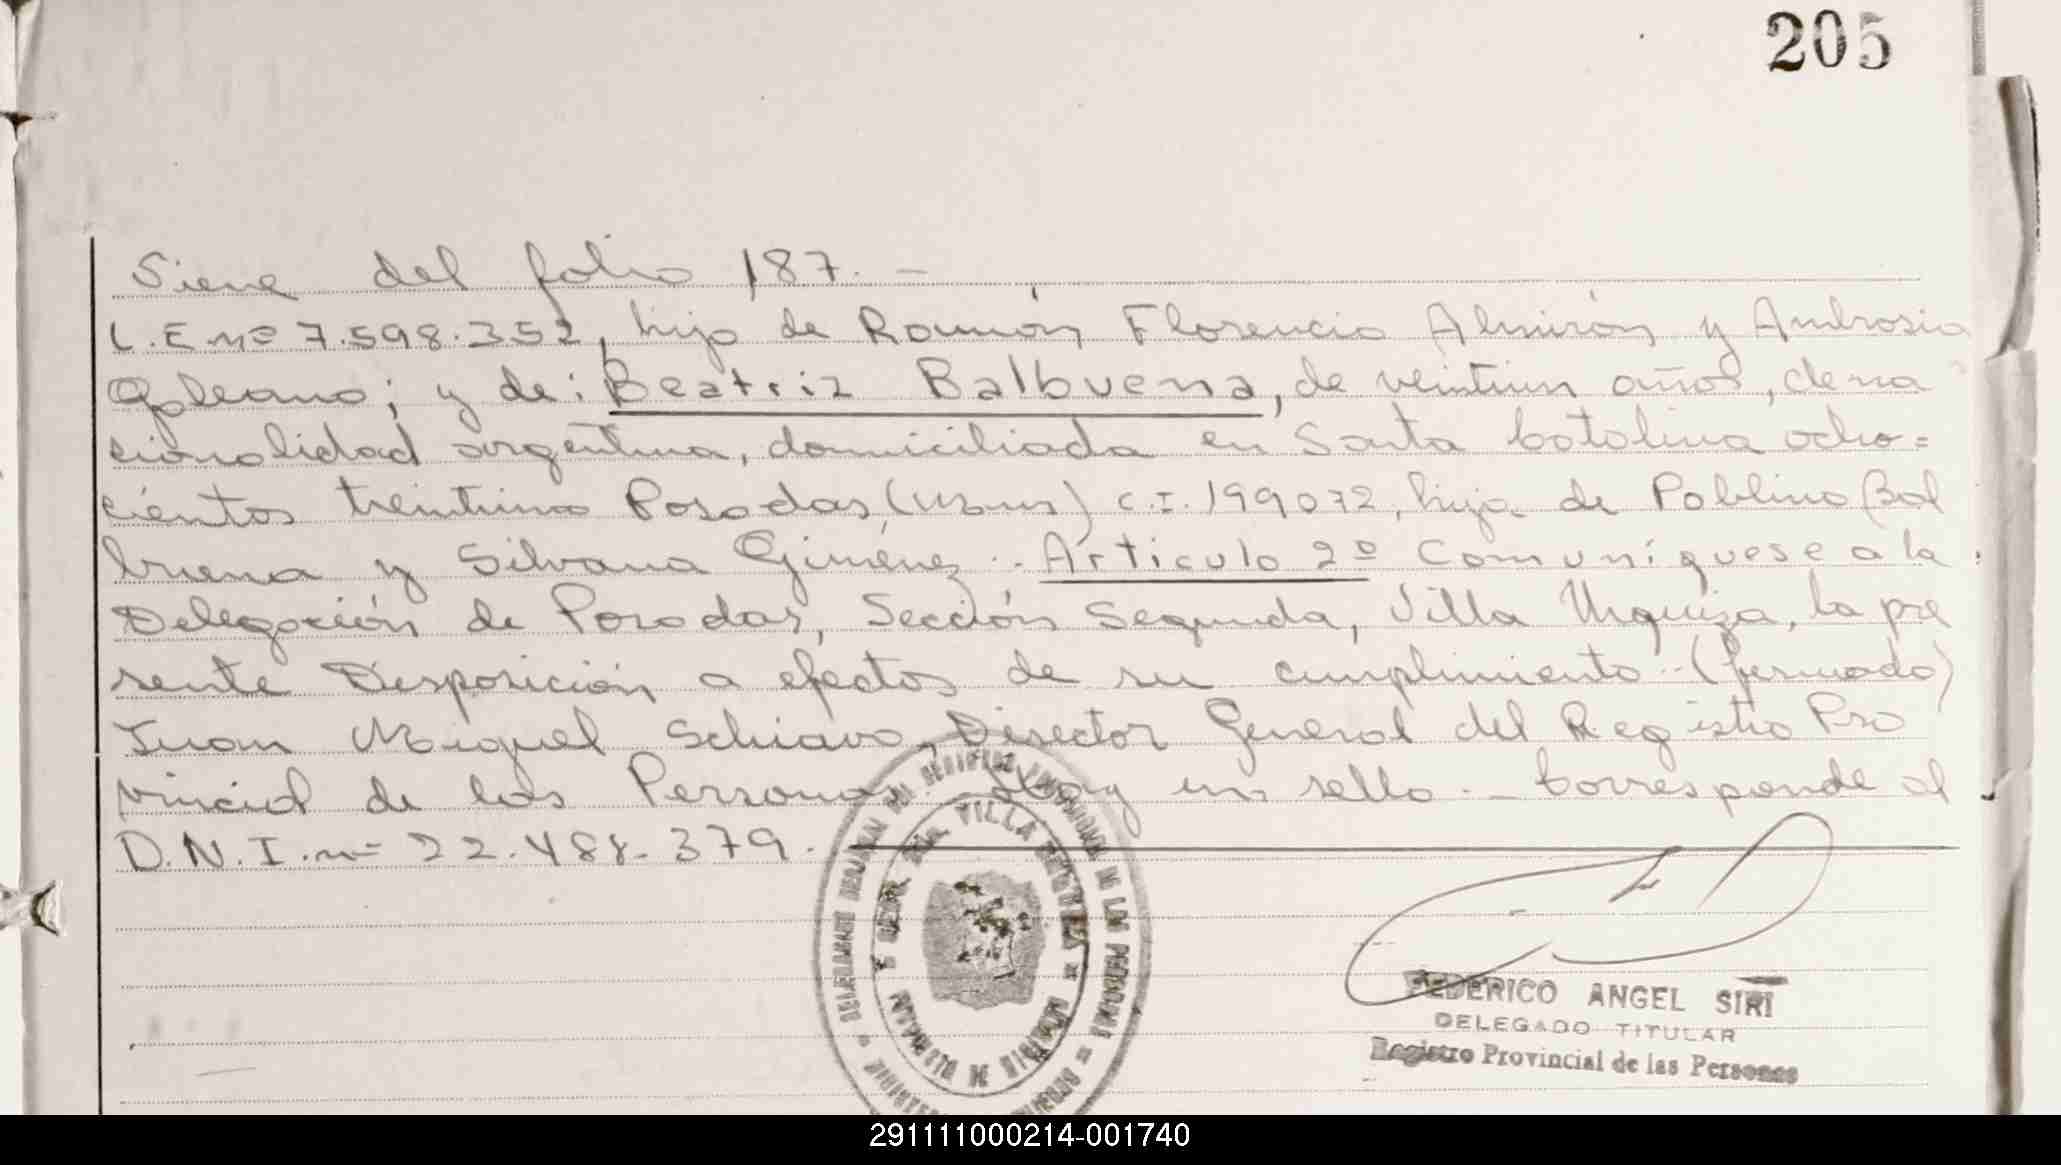 205
Viene del folio 187. -
L.E nº 7.598.352, hijo de Ramón Florencio Almirón y Ambrosia
Galeano; y de: Beatriz Balbuena, de veintiun años, de na
cionalidad argentina, domiciliada en Santa Catalina ocho=
cientos treintiuno Posadas, (Mnes) C.I. 199072, hija de Pablino Bal
buena y Silvana Giménez.- Artículo 2º Comuníquese a la
Delegación de Posadas, Sección Segunda, Villa Urquiza, la pre
sente Disposición a efectos de su cumplimiento.- (firmado)
Juan Miguel Schiavo, Director General del Registro Pro
vincial de las Personas Hay un sello.- Corresponde al
D.N.I. nº 22.488.379.
VILLA
FEDERICO ANGEL SIRI
DELEGADO TITULAR
Registro Provincial de las Personas
291111000214-001740